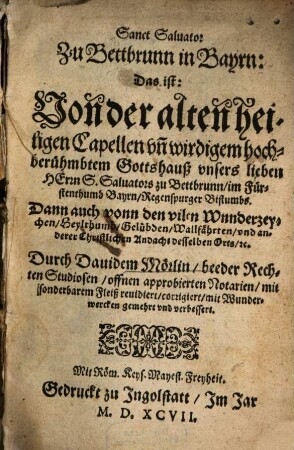 Sanct Saluator
Zu Bettbrunn in Bayrn:
Das ist:
Von der alten hei-
ligen Capellen vñ wirdigem hoch-
berühmbtem Gottshauß vnsers lieben
HErrn S. Saluators zu Bettbrunn/im Für-
stenthumb Bayrn/Regenspurger Bistumbs.
Dann auch vonn den vilen Wunderzey-
chen/Heylthumb/Gelübden/Wallfährten/vnd an-
derer Christlichen Andacht desselben Orts/ꝛc.
Durch Dauidem Mörlin/beeder Rech-
ten Studiosen/offnen approbierten Notarien/mit
sonderbarem Fleiß reuidiert/corrigiert/mit Wunder-
wercken gemehrt vnd verbessert.
Mit Röm. Keys. Mayest. Freyheit.
Gedruckt zu Ingolstatt/Im Jar
M. D. XCVII.